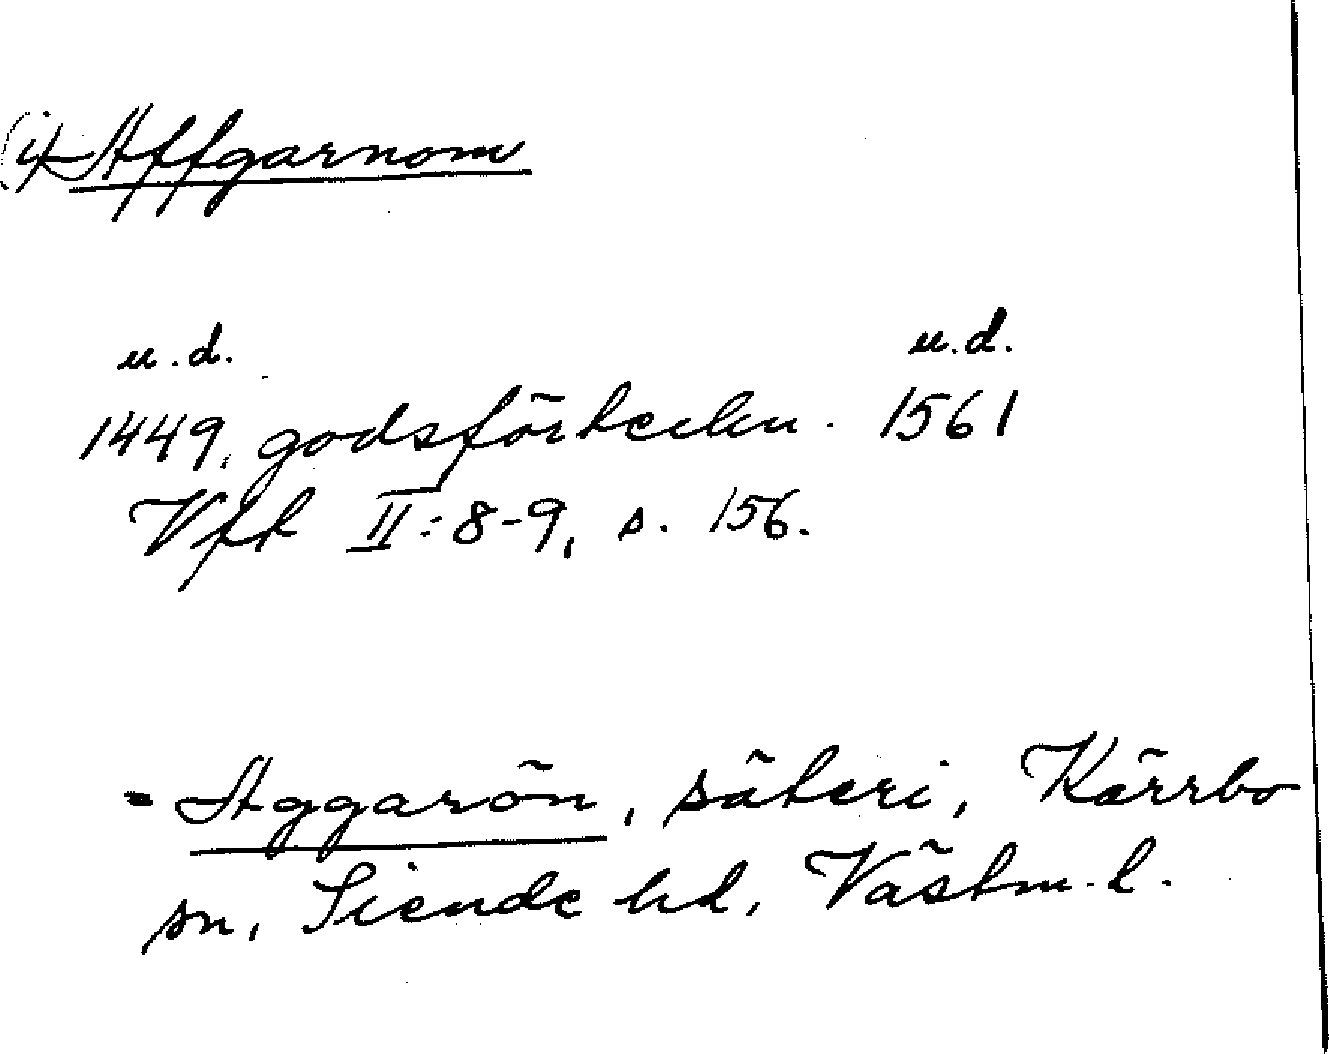 (i) Affgarnom
u.d. u.d.
1449, godsförteckn. 1561
Vfk II:8-9, s. 156.
= Aggarön, säteri, Kärrbo
sn, Siende hd, Västm. l.